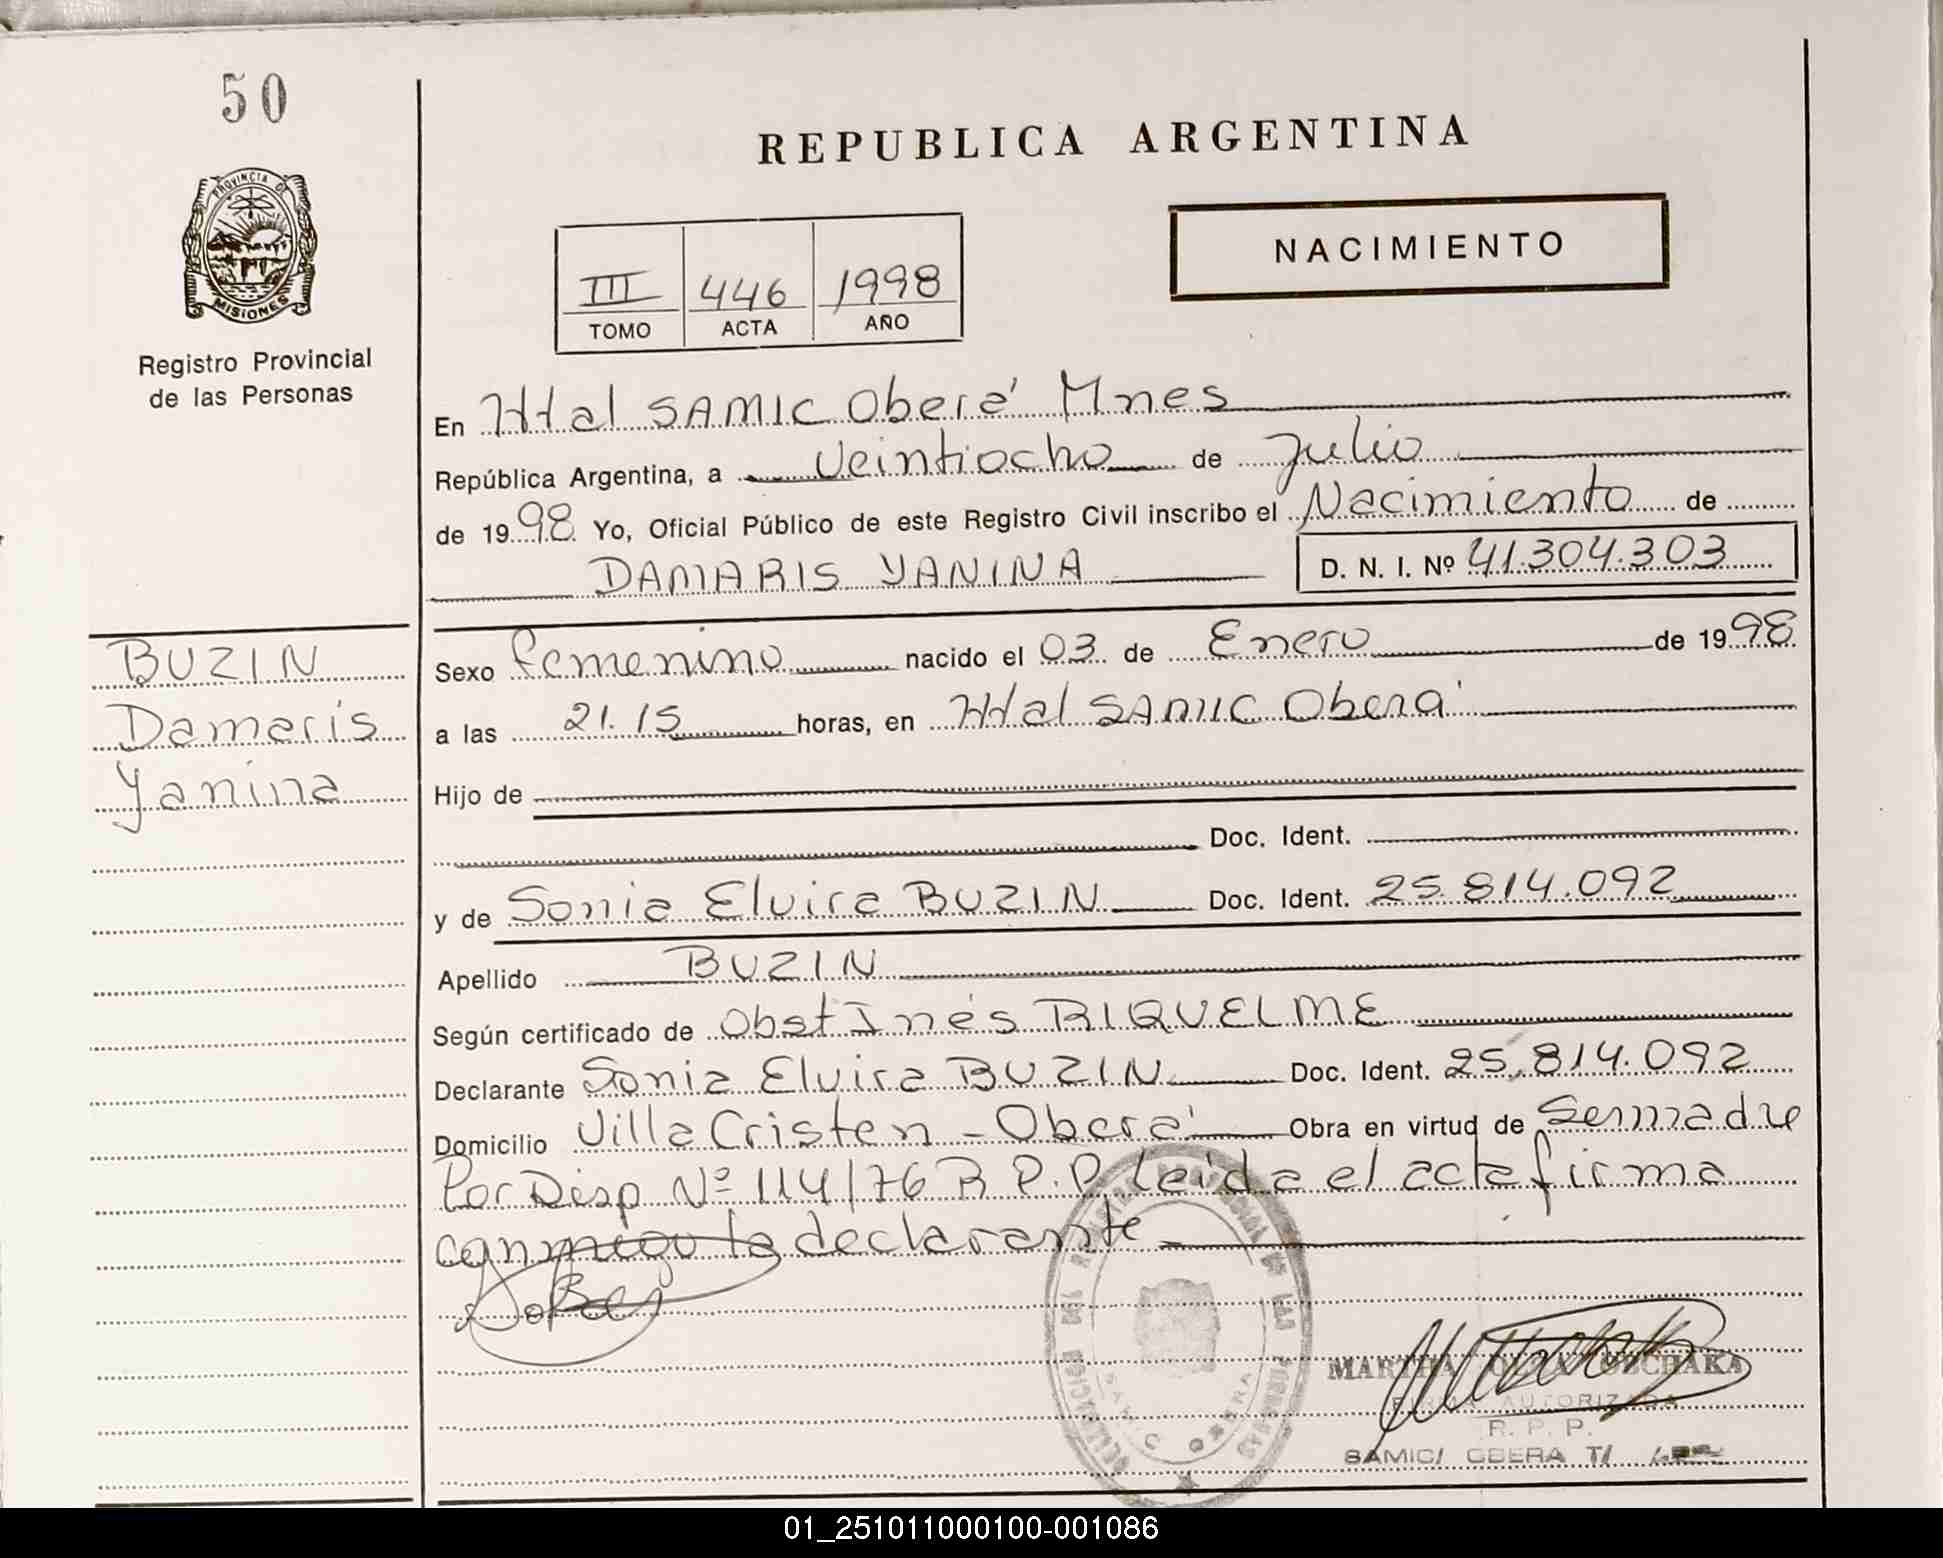 50
PROVINCIA DE
MISIONES
Registro Provincial
de las Personas
REPUBLICA ARGENTINA
NACIMIENTO
III 446 1998
TOMO ACTA AÑO
En Htal SAMIC Oberá Mnes
República Argentina, a veintiocho de Julio
de 1998 Yo, Oficial Público de este Registro Civil inscribo el Nacimiento de
DAMARIS YANINA D. N. I. Nº 41.304.303
BUZIN
Damaris
Yanina
Sexo femenino nacido el 03 de Enero de 1998
a las 21.15 horas, en Htal SAMIC Oberá
Hijo de
Doc. Ident.
y de Sonia Elvira BUZIN Doc. Ident. 25.814.092
Apellido BUZIN
Según certificado de Obst Inés RIQUELME
Declarante Sonia Elvira BUZIN Doc. Ident. 25.814.092
Domicilio Villa Cristen - Oberá Obra en virtud de Ser madre
Por Disp Nº 114/76 R P.P. Leida el acta firma
conmigo la declarante
MARTHA
FIRMA AUTORIZADA
R. P. P.
SAMIC/ OBERA
SAMIC OBERA
01_251011000100-001086